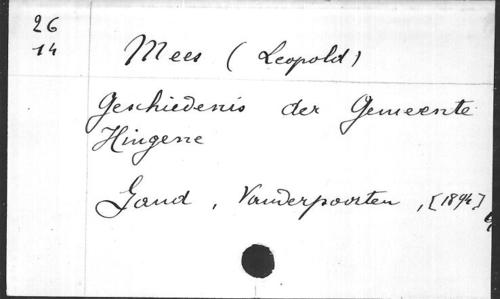 26
14
Mees (Leopold)
Geschiedenis der Gemeente
Hingene
Gand, Vanderpoorten, [1894]